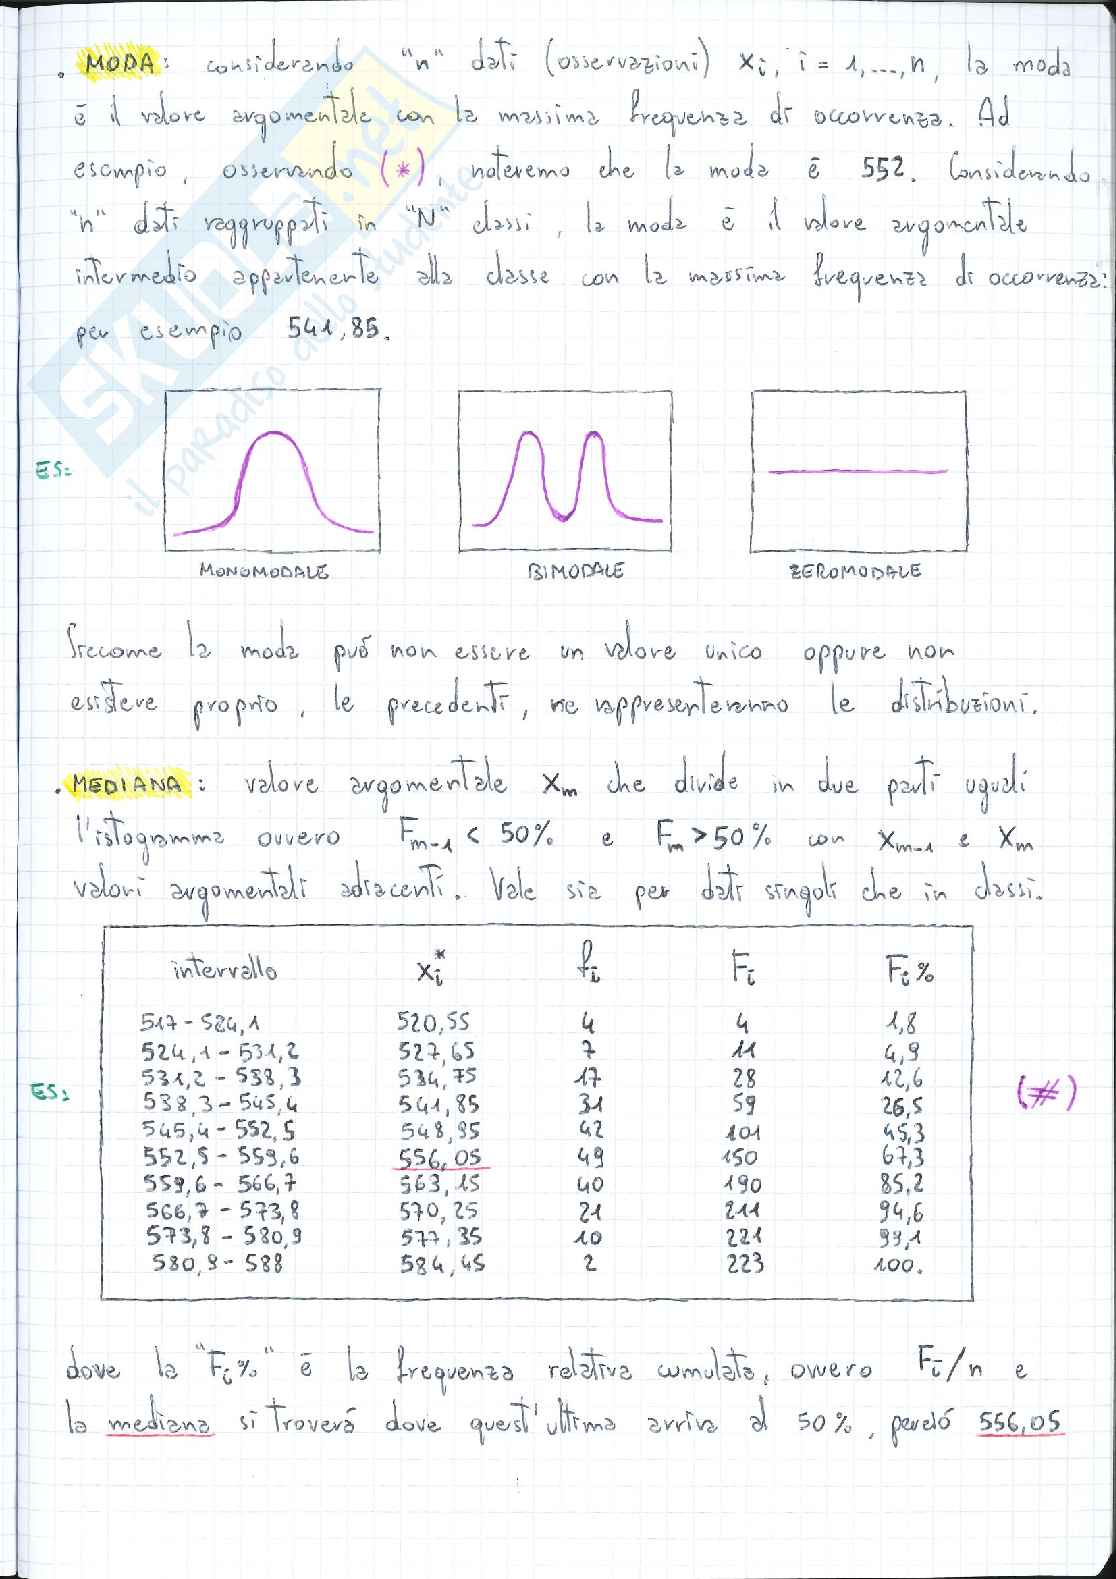 . MODA: considerando "n" dati (osservazioni) xi, i = 1,...,n, la moda
è il valore argomentale con la massima frequenza di occorrenza. Ad
esempio, osservando (*), noteremo che la moda è 552. Considerando
"n" dati raggruppati in "N" classi, la moda è il valore argomentale
intermedio appartenente alla classe con la massima frequenza di occorrenza:
per esempio 541,85.
SKUOLA.net
il paradiso dello studente
ES:
MONOMODALE BIMODALE ZEROMODALE
Siccome la moda può non essere un valore unico oppure non
esistere proprio, le precedenti, ne rappresenteranno le distribuzioni.
. MEDIANA: valore argomentale Xm che divide in due parti uguali
l'istogramma ovvero Fm-1 < 50% e Fm > 50% con Xm-1 e Xm
valori argomentali adiacenti. Vale sia per dati singoli che in classi.
intervallo xi* fi Fi Fi%
517-524,1 520,55 4 4 1,8
524,1-531,2 527,65 7 11 4,9
ES: 531,2-538,3 534,75 17 28 12,6 (#)
538,3-545,4 541,85 31 59 26,5
545,4-552,5 548,95 42 101 45,3
552,5-559,6 556,05 49 150 67,3
559,6-566,7 563,15 40 190 85,2
566,7-573,8 570,25 21 211 94,6
573,8-580,9 577,35 10 221 99,1
580,9-588 584,45 2 223 100.
dove la "Fi%" è la frequenza relativa cumulata, ovvero Fi/n e
la mediana si troverà dove quest'ultima arriva al 50%, perciò 556,05